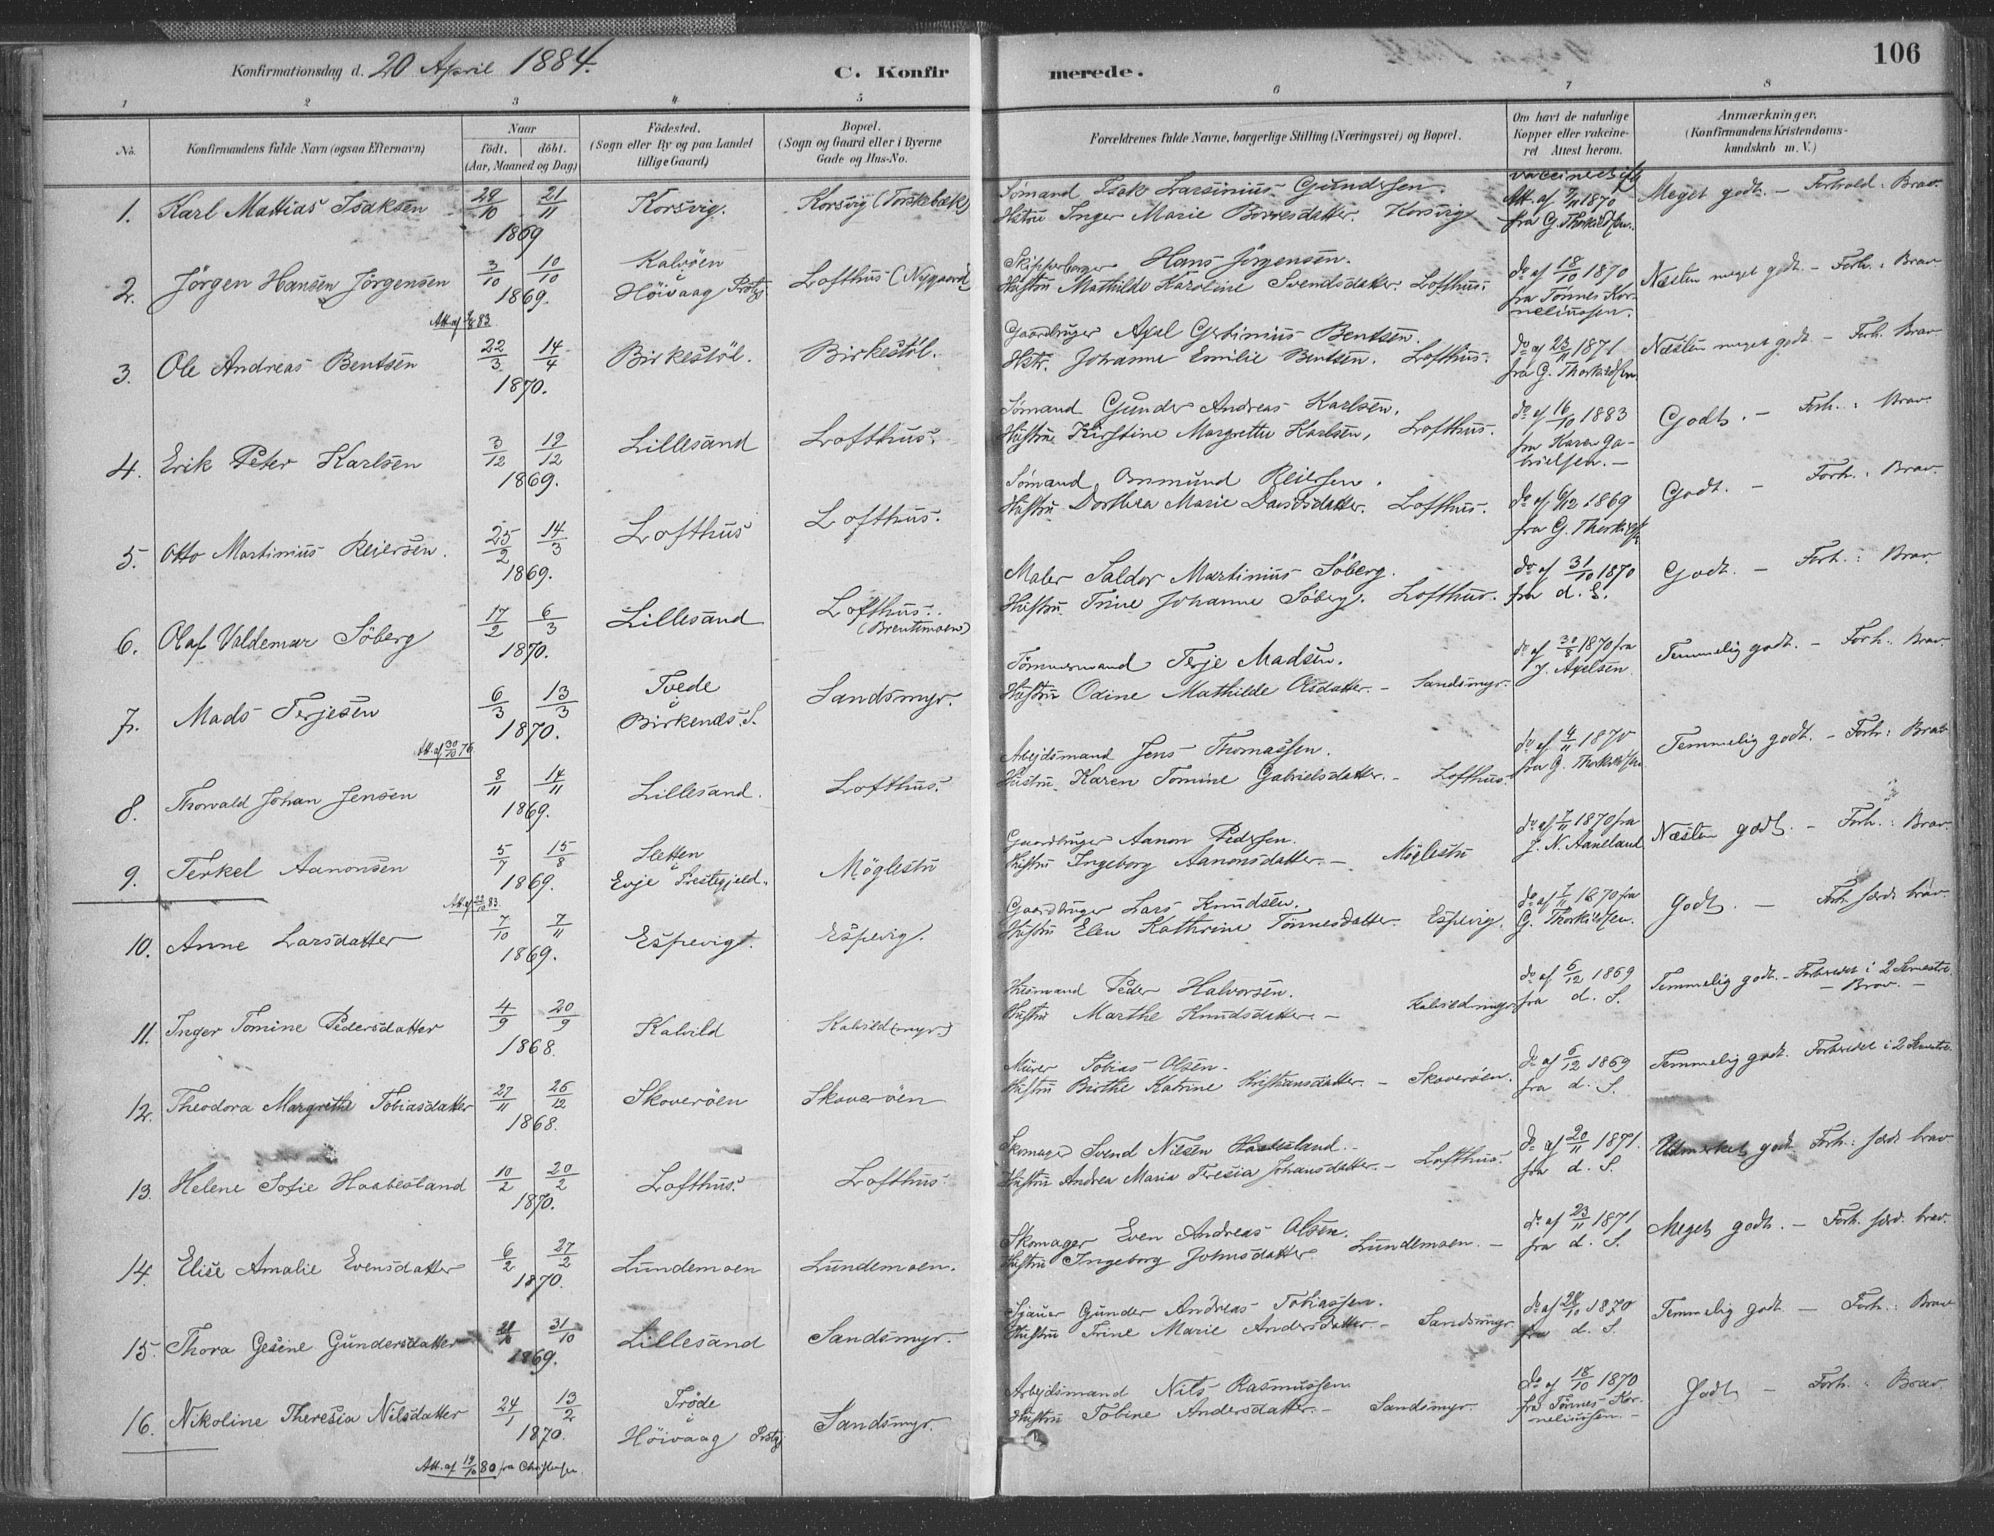 Konfirmationsdag d. 20 April 1884. C. Konfirmerede. 106
1 2 3 4 5 6 7 8
No. Konfirmandens fulde Navn (ogsaa Efternavn) Naar födt. döbt. (Aar, Maaned og Dag) Födested. (Sogn eller By og paa Landet tillige Gaard) Bopæl. (Sogn og Gaard eller i Byerne Gade og Hus-No.) Forældrenes fulde Navne, borgerlige Stilling (Næringsvei) og Bopæl. Om havt de naturlige Kopper eller vakcineret Attest herom. Anmærkninger, (Konfirmandens Kristendomskundskab m. V.)
1. Karl Mattias Isaksen 28/10 21/11 1869 Korsvig. Korsvig (Torskebæk) Sømand Isak Larsinius Gundersen.
Hstru Inger Marie Borresdatter. Korsvig vaccineret Att. af 7/11 1870 fra G. Thorkildsen. Meget godt. – Forhold: Brav.
2. Jörgen Hansen Jörgensen 3/10 10/10 1869. Kalvöen i Höivaag Prstgj Lofthus (Nygaard) Skipperborger Hans Jörgensen.
Hustru Mathilde Karoline Svendsdatter. Lofthus. do af 18/10 1870 fra Tönnes Kornelinssen. Næsten meget godt. – Forh.: Brav
Att. af 83
3. Ole Andreas Bentsen 22/3 14/4 1870. Birkestöl. Birkestöl. Gaardbruger Axel Gertinius Bentsen.
Hstr. Johanne Emilie Bentsen. Lofthus. do af 23/11 1871 fra G. Thorkildsen. Næsten meget godt – Forh. Brav
4. Erik Peter Karlsen 3/12 19/12 1869. Lillesand Lofthus. Sømand Gunder Andreas Karlsen.
Hustru Kirstine Margrethe Karlsen, Lofthus. do af 16/10 1883 fra Karen Gabrielsen. – Godt. – Forh.: Brav.
5. Otto Martinius Reiersen. 25/2 14/3 1869. Lofthus Lofthus. Sømand Onmund Reiersen.
Hustru Dorthea Marie Davidsdatter. Lofthus. do af 6/12 1869 fra G. Thorkildsen Godt. – Forh.: Brav.
6. Olaf Valdemar Söberg 17/2 6/3 1870. Lillesand Lofthus. (Brentemoen) Maler Saldor Martinius Söberg.
Hustru Trine Johanne Söberg. Lofthus. do af 31/10 1870 fra d. S. Godt. – Forh.: Brav.
7. Mads Terjesen 6/3 13/3 1870. Tvede i Birkends S. Sandsmyr. Tömmermand Terje Madsen.
Hustru Odine Mathilde Olsdatter. – Sandsmyr. do af 30/8 1870 fra J. Axelsen. Temmelig godt. – Forh.: Brav.
Att. af 30/10 76
8. Thorvald Johan Jensen 8/11 14/11 1869. Lillesand. Lofthus. Arbejdsmand Jens Thomassen.
Hustru Karen Tomine Gabrielsdatter. – Lofthus. do af 4/11 1870 fra G. Thorkildsen Temmelig godt. – Forh: Brav
9. Terkel Aanonsen 5/7 15/8 1869. Sletten i Evje Prestegjeld. Möglestu Gaardbruger Aanon Pedersen.
Hustru Ingeborg Aanonsdatter. – Möglestu do af 7/11 1870 fra J. N. Aaneland Næsten godt. – Forh.: Brav.
Att. af 22/10 83.
10. Anne Larsdatter 7/10 7/11 1869. Espevig. Espevig. Gaardbruger Lars Knudsen.
Hustru Elen Kathrine Tönnesdatter. Espevig. do af 7/11 1870 fra G. Thorkildsen. Godt. – Forh. særd. brav.
11. Inger Tomine Pedersdatter 4/9 20/9 1868. Kalvild Kalvild (myr.) Husmand Peder Halvorsen.
Hustru Marthe Knudsdatter. – Kalvildmyr. do af 6/12 1869 fra d. S. Temmelig godt. – Forberedet i 2 Semestre. – Brav. –
12. Theodora Margrethe Tobiasdatter 27/11 26/12 1868. Skoveröen Skoveröen Murer Tobias Olsen.
Hustru Birthe Katrine Kristiansdatter. – Skoveröen. do af 6/12 1869 fra d. S. Temmelig godt. Forberedet i 2 Semestre.
13. Helene Sofie Haabesland 10/2 20/2 1870. Lofthus. Lofthus. Skomager Svend Nilsen Haabesland.
Hustru Andrea Maria Teresia Johansdatter. – Lofthus. do af 20/11 1871. fra d. S. Udmerket godt. Forh: særd. brav
14. Elise Amalie Evensdatter 6/2 27/2 1870. Lundemoen Lundemoen. Skomager Even Andreas Olsen.
Hustru Ingeborg Johnsdatter. Lundemoen. – do af 23/11 1871 fra d. S. Meget godt. – Forh. særd. brav.
15. Thora Gesine Gundersdatter 31/10 1869. Lillesand Sandsmyr. Sjauer Gunder Andreas Tobiassen.
Hustru Trine Marie Andersdatter – Sandsmyr. do af 28/10 1870 fra d. S. Temmelig godt – Forh.: Brav
16. Nikoline Theresia Nilsdatter 24/1 13/2 1870. Tröde i Höivaag Prstgj Sandsmyr. Arbejdsmand Nils Rasmussen
Hustru Tobine Andersdatter. – Sandsmyr. do af 18/10 1870 fra Tönnes Kornelinssen. – Godt – Forh.: Brav.
Att. af 19/10 80 fra Christensen.